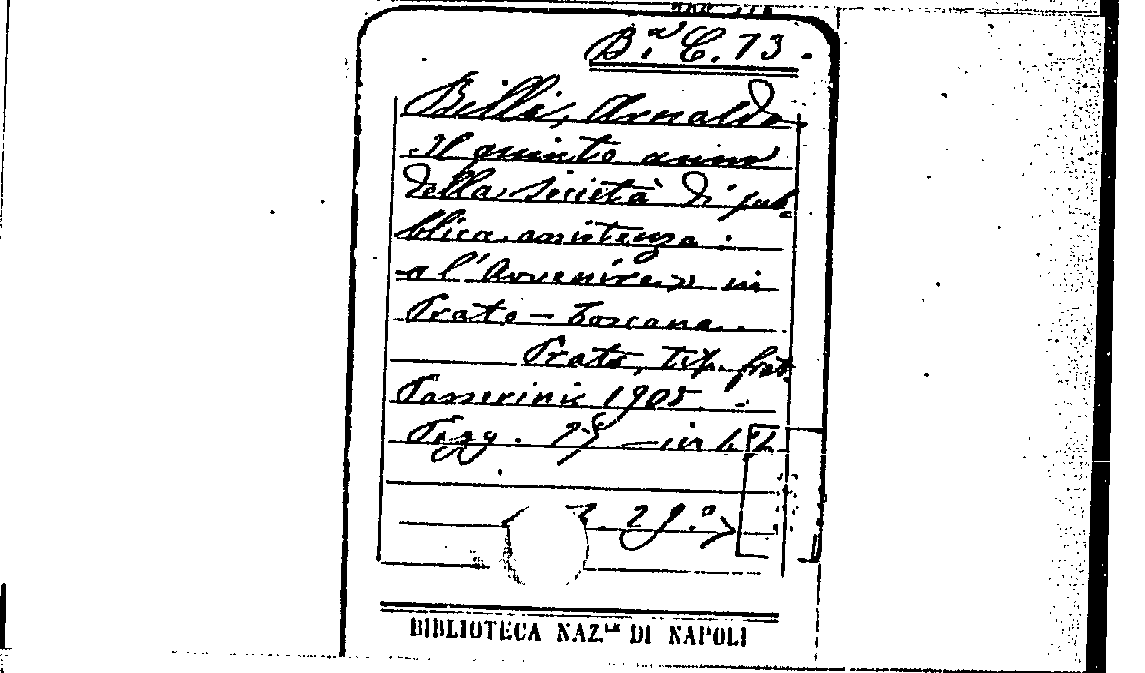 Bⁿ C. 73.
Billi, Arnaldo
Il quinto anno
della società di pub-
blica assistenza:
« l'Avvenire » in
Prato - Toscana.
Prato, tip. frat.
Passerini 1905.
Pagg. in
29.°
BIBLIOTECA NAZ.LE DI NAPOLI